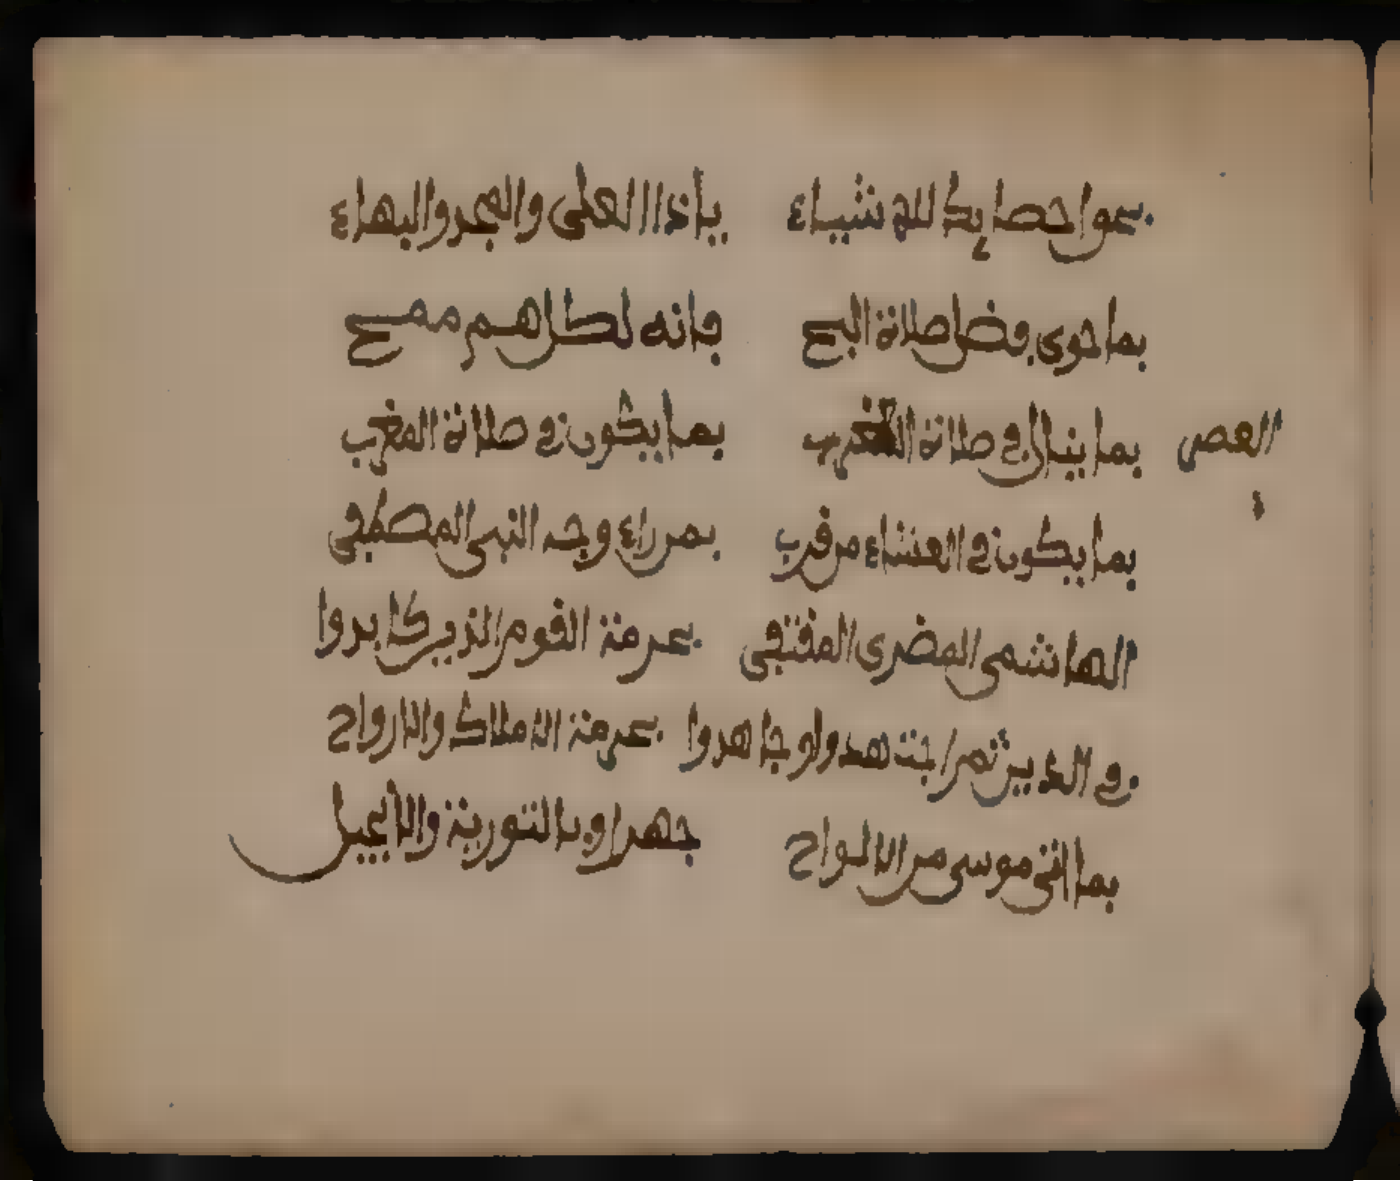 بحق احصايك للاشياء يا ذا العلى والمجد والبهاء
بما حوى فضل صلاة الصبح فانه لكل هم ممح
بما ينال في صلاة المغرب بما يكون في صلاة المغرب
العصر
بما يكون في العشاء من قرب بمن راء وجه النبي المصطفى
الهاشمي المضري المقتفي بحرمة القوم الذين كابروا
في الدين ثم اجتهدوا وجاهروا بحرمة الاملاك والارواح
بما اتى موسى من الالواح جهرا وبالتورية والانجيل